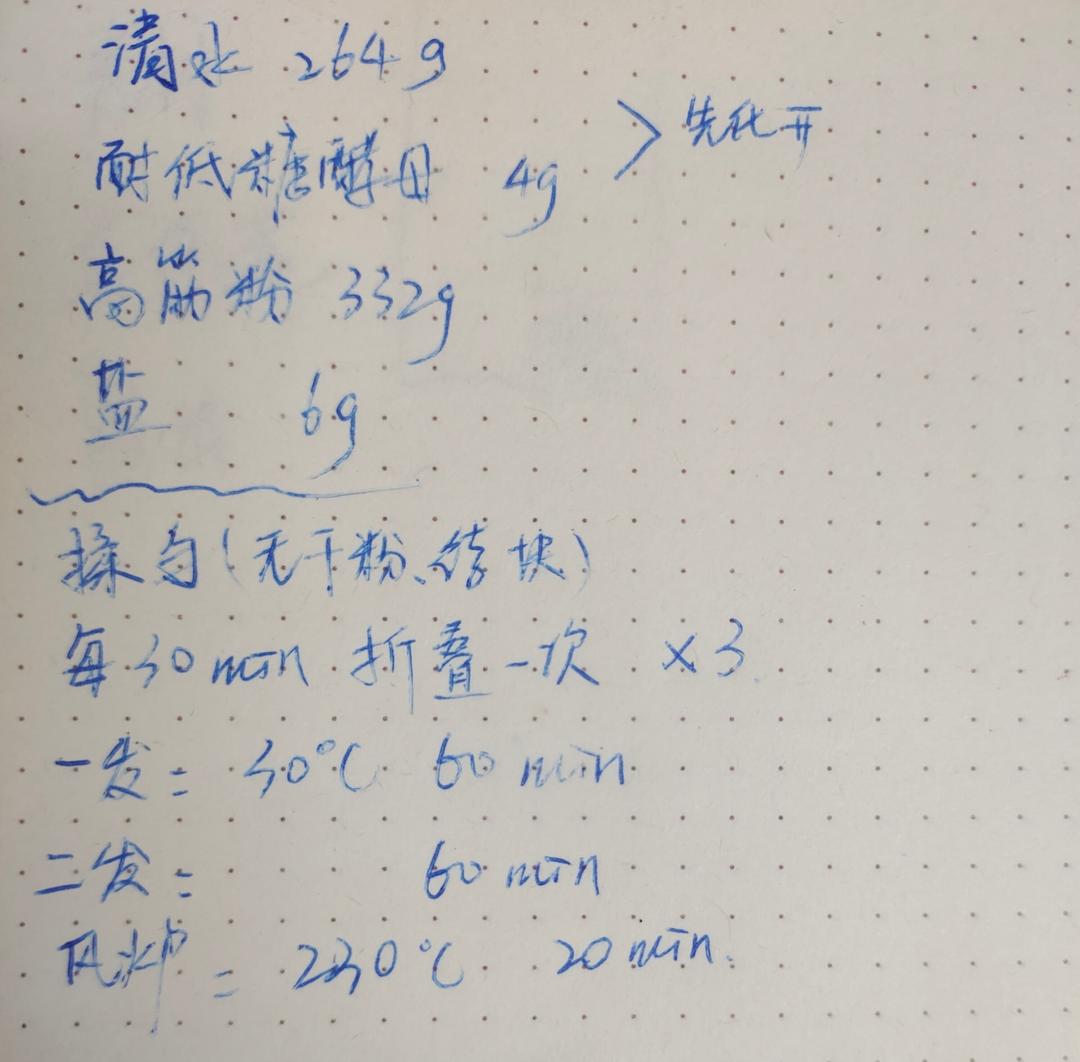 清水 264g
耐低糖酵母 4g > 先化开
高筋粉 332g
盐 6g
揉匀(无干粉、结块)
每30min 折叠一次 ×3
一发: 30℃ 60min
二发: 60min
风炉: 230℃ 20min.